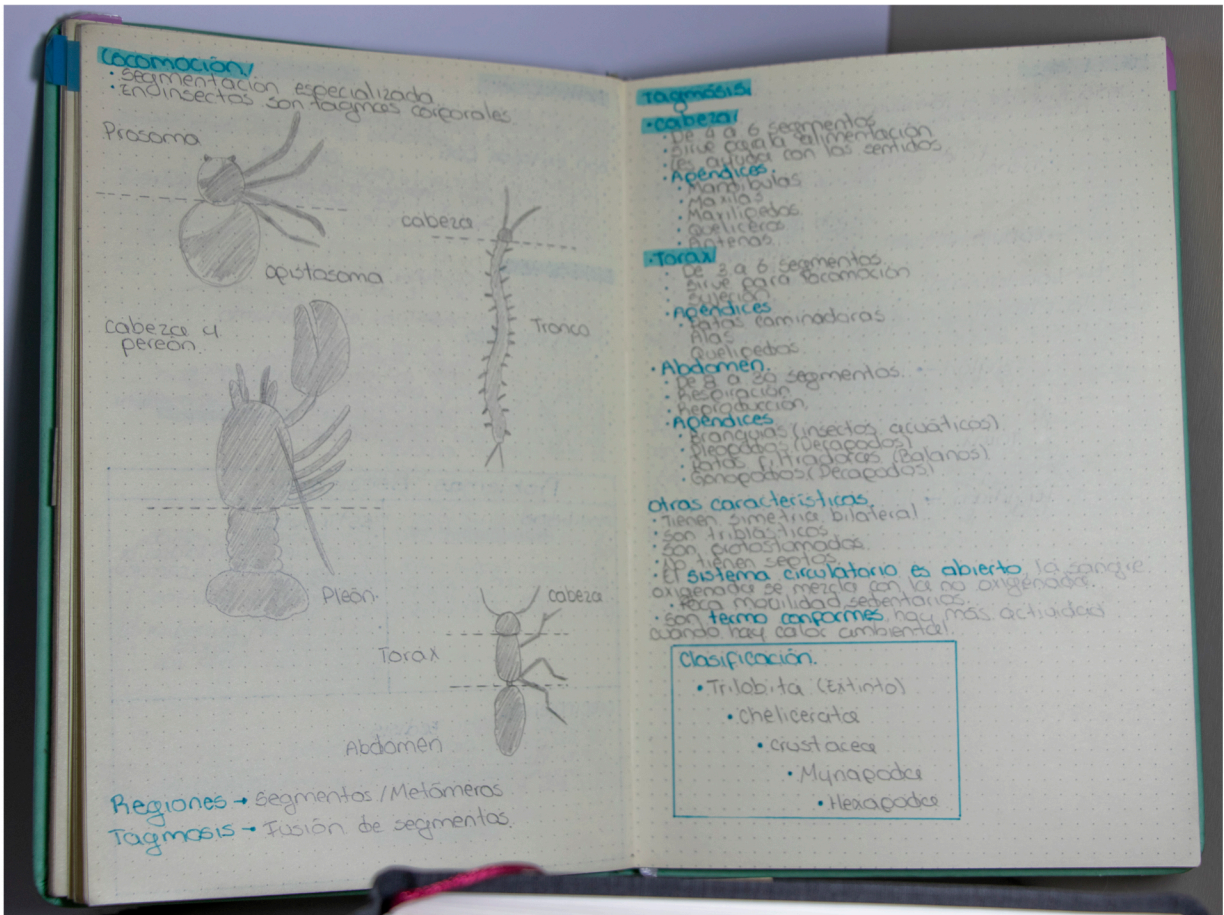 Locomoción/
• Segmentación especializada
• En insectos son tagmas corporales.
Prosoma
opistosoma
cabeza
Tronco
cabeza y
pereón.
Pleón.
cabeza
Torax
Abdomen
Regiones → Segmentos / Metámeros
Tagmosis → Fusión de segmentos.
Tagmosis:
• Cabeza/
• De 4 a 6 segmentos
• Sirve para la alimentación
• Les ayuda con los sentidos.
• Apéndices.
• Mandíbulas
• Maxilas
• Maxilipedos
• Queliceros
• Antenas.
• Torax/
• De 3 a 6 segmentos
• Sirve para locomoción
• Sujeción
• Apéndices
• Patas caminadoras
Alas
Quelipedos.
• Abdomen.
• De 8 a 20 segmentos.
• Respiración
• Reproducción
• Apéndices
• Branquias (insectos acuáticos)
• Pleopodos (Decapodos)
• Patas filtradoras (Balanos)
• Gonopodos (Decapodos)
otras características.
• Tienen simetria bilateral
• son triblásticos
• son protostomados.
• No tienen septos.
• El sistema circulatorio es abierto, la sangre
oxigenada se mezcla con la no oxigenada.
• Poca movilidad sedentarios.
• son termo conformes, hay más actividad
cuando hay calor ambiental.
Clasificación.
• Trilobita (Extinto)
• chelicerata
• crustacea
• Myriapoda
• Hexapoda